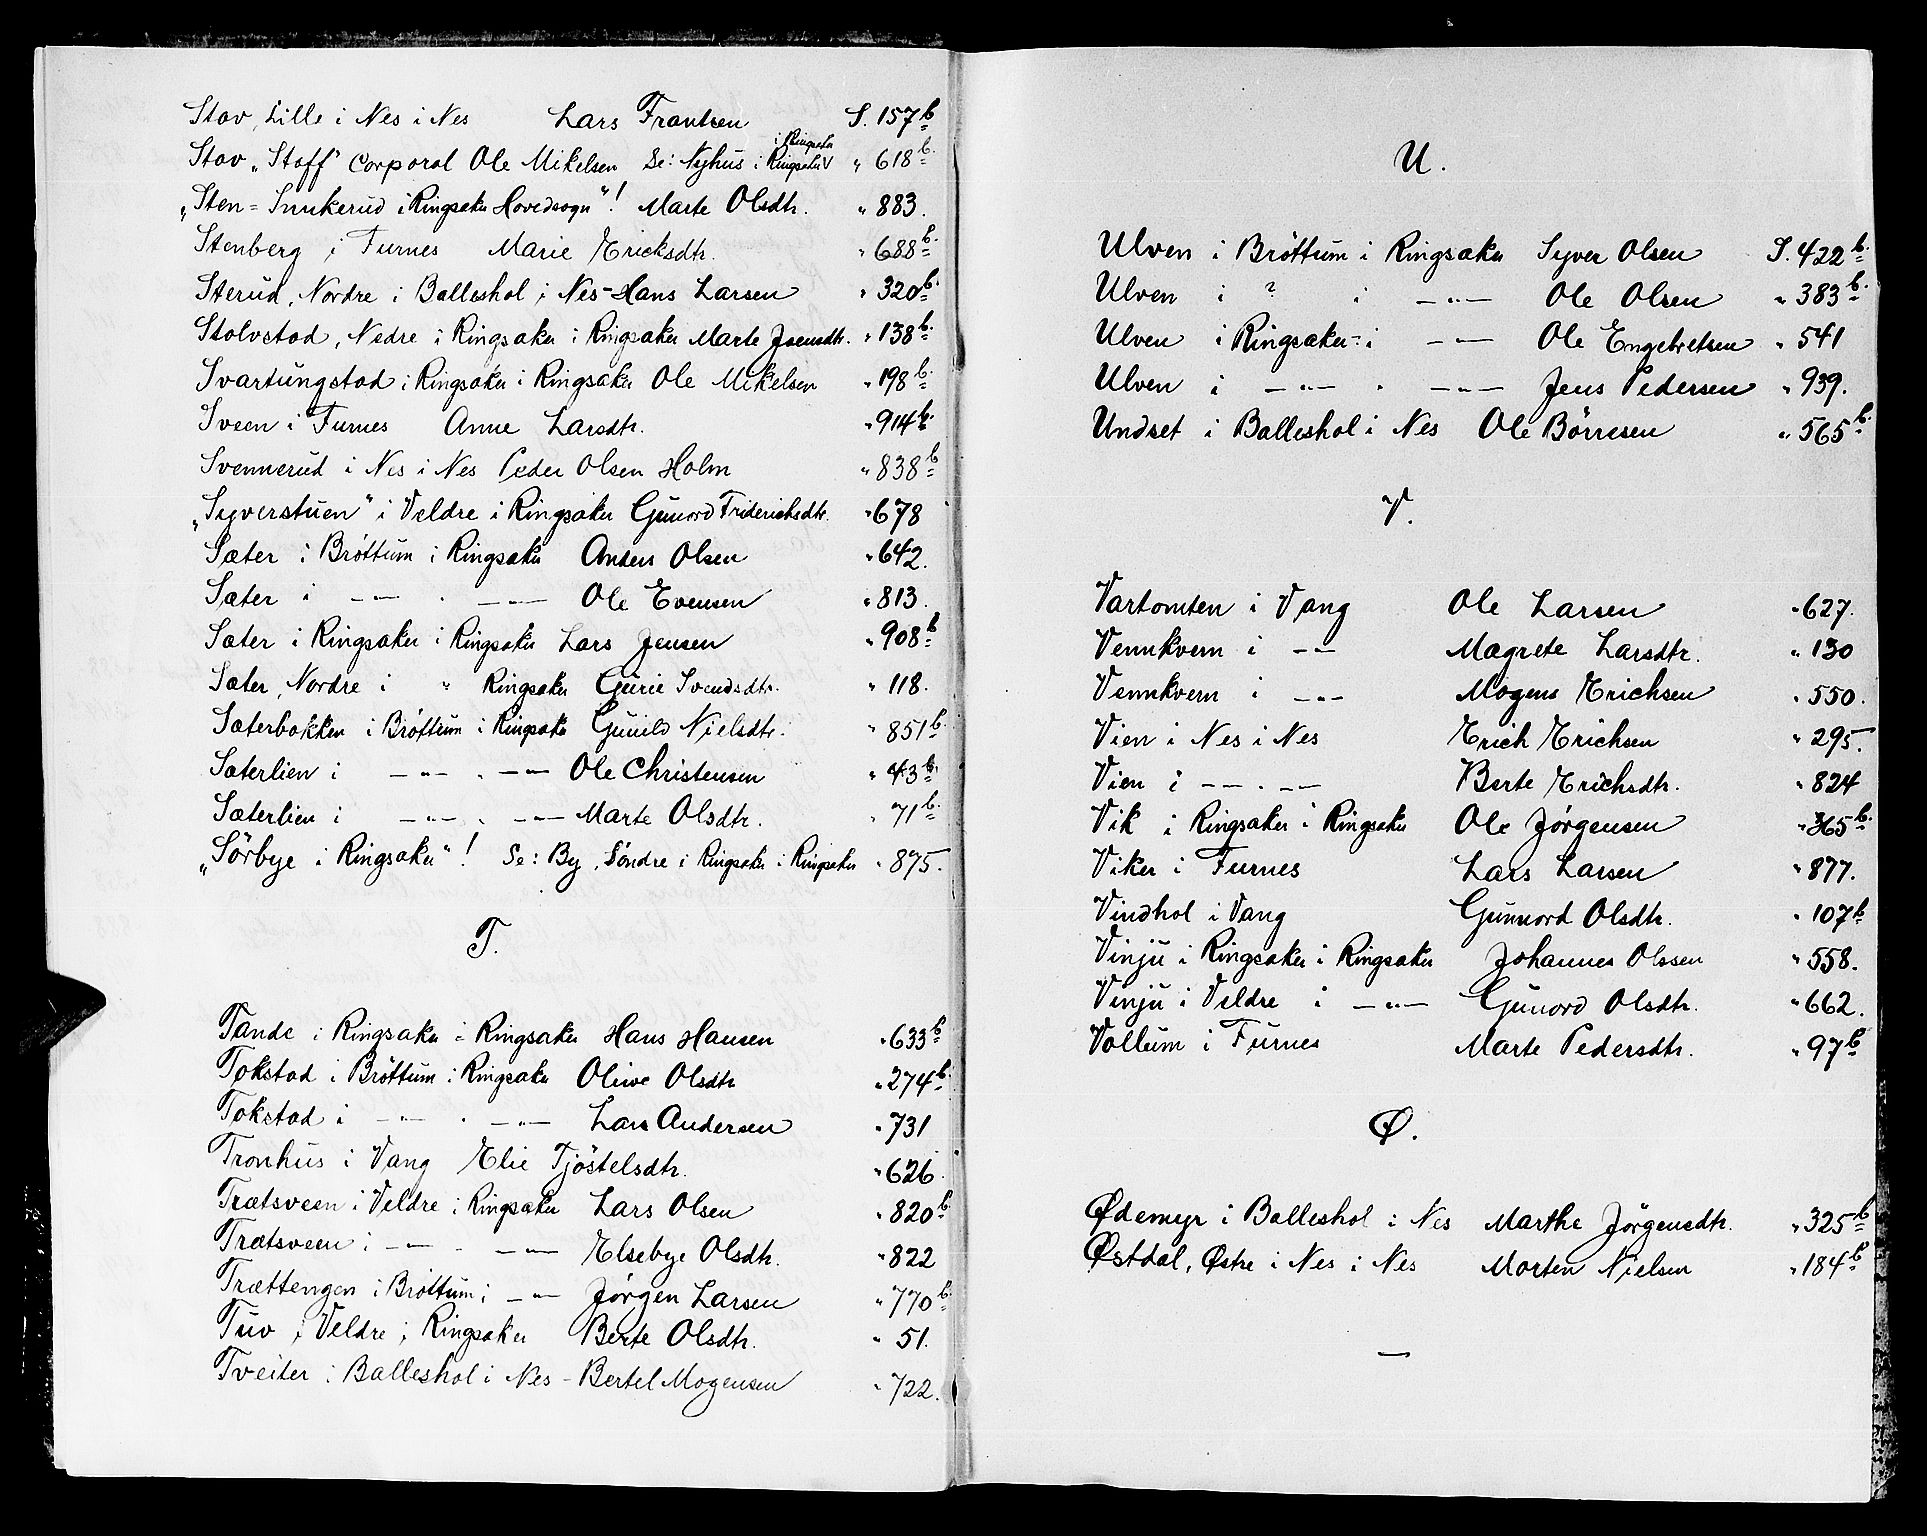 Stav, Lille i Nes i Nes Lars Frantsen S. 157 b
i Ringsaker
Stav „Staff" Corporal Ole Mikelsen Se: Nyhus i Ringsaker √ „ 618 b.
„Sten = Snukerud i Ringsaker Hovedsogn"! Marte Olsdtr. „ 883.
Stenberg i Furnes Marie Ericksdtr. „ 688 b.
Sterud, Nordre i Balleshol i Nes - Hans Larsen „ 320 b.
Stolvstad, Nedre i Ringsaker i Ringsaker Marte Joensdtr. „ 138 b.
Svartungstad i Ringsaker i Ringsaker Ole Mikelsen „ 198 b.
Sveen i Furnes Anne Larsdtr. „ 914 b.
Svennerud i Nes i Nes Peder Olsen Holm „ 838 b
„Syverstuen" i Veldre i Ringsaker Gunord Friderichsdtr. „ 678
Sæter i Brøttum i Ringsaker Anders Olsen „ 642.
Sæter i — „ — . — „ — Ole Evensen „ 813.
Sæter i Ringsaker i Ringsaker Lars Jensen „ 908 b
Sæter, Nordre i „ Ringsaker Gurie Svendsdtr. „ 118.
Sæterbakken i Brøttum i Ringsaker Gunild Nielsdtr. „ 851 b.
Sæterlien i — „ — . — „ — Ole Christensen „ 43 b.
Sæterlien i — „ — . — „ — Marte Olsdtr. „ 71 b.
„Sörbye i Ringsaker"! Se: By, Söndre i Ringsaker i Ringsaker „ 875.
T.
Tande i Ringsaker i Ringsaker Hans Hansen „ 633 b
Tokstad i Brøttum i Ringsaker Olive Olsdtr „ 274 b.
Tokstad i — „ — . — „ — Lars Andersen „ 731
Tronhus i Vang Elie Tjöstelsdtr. „ 626
Trætsveen i Veldre i Ringsaker Lars Olsen „ 820 b.
Trætsveen i — „ — . — „ — Elsebye Olsdtr. „ 822
Trættengen i Brøttum i — „ — Jørgen Larsen „ 770 b.
Tuv i Veldre i Ringsaker Berte Olsdtr. „ 51.
Tveiter i Balleshol i Nes - Bertel Mogensen „ 722.
U.
Ulven i Brøttum i Ringsaker Syver Olsen S. 422 b.
Ulven i ? i — „ — Ole Olsen „ 383 b.
Ulven i Ringsaker i — „ — Ole Engebretsen „ 541
Ulven i — „ — . — „ — Jens Pedersen „ 939.
Undset i Balleshol i Nes Ole Börresen „ 565 b.
V.
Vartomten i Vang Ole Larsen „ 627.
Vennkvern i — „ — Magrete Larsdtr. „ 130
Vennkvern i — „ — Mogens Erichsen „ 550.
Vien i Nes i Nes Erich Erichsen „ 295.
Vien i — „ — . — „ — Berte Erichsdtr. „ 824
Vik i Ringsaker i Ringsaker Ole Jørgensen „ 365 b.
Viker i Furnes Lars Larsen „ 877.
Vindhol i Vang Gunnord Olsdtr. „ 107 b
Vinju i Ringsaker i Ringsaker Johannes Olssen „ 558.
Vinju i Veldre i — „ — Gunord Olsdtr. „ 662.
Vollum i Furnes Marte Pedersdtr. „ 97 b
Ø.
Ødemyr i Balleshol i Nes Marthe Jörgensdtr. „ 325 b
Østdal, Østre i Nes i Nes Morten Nielsen „ 184 b
—